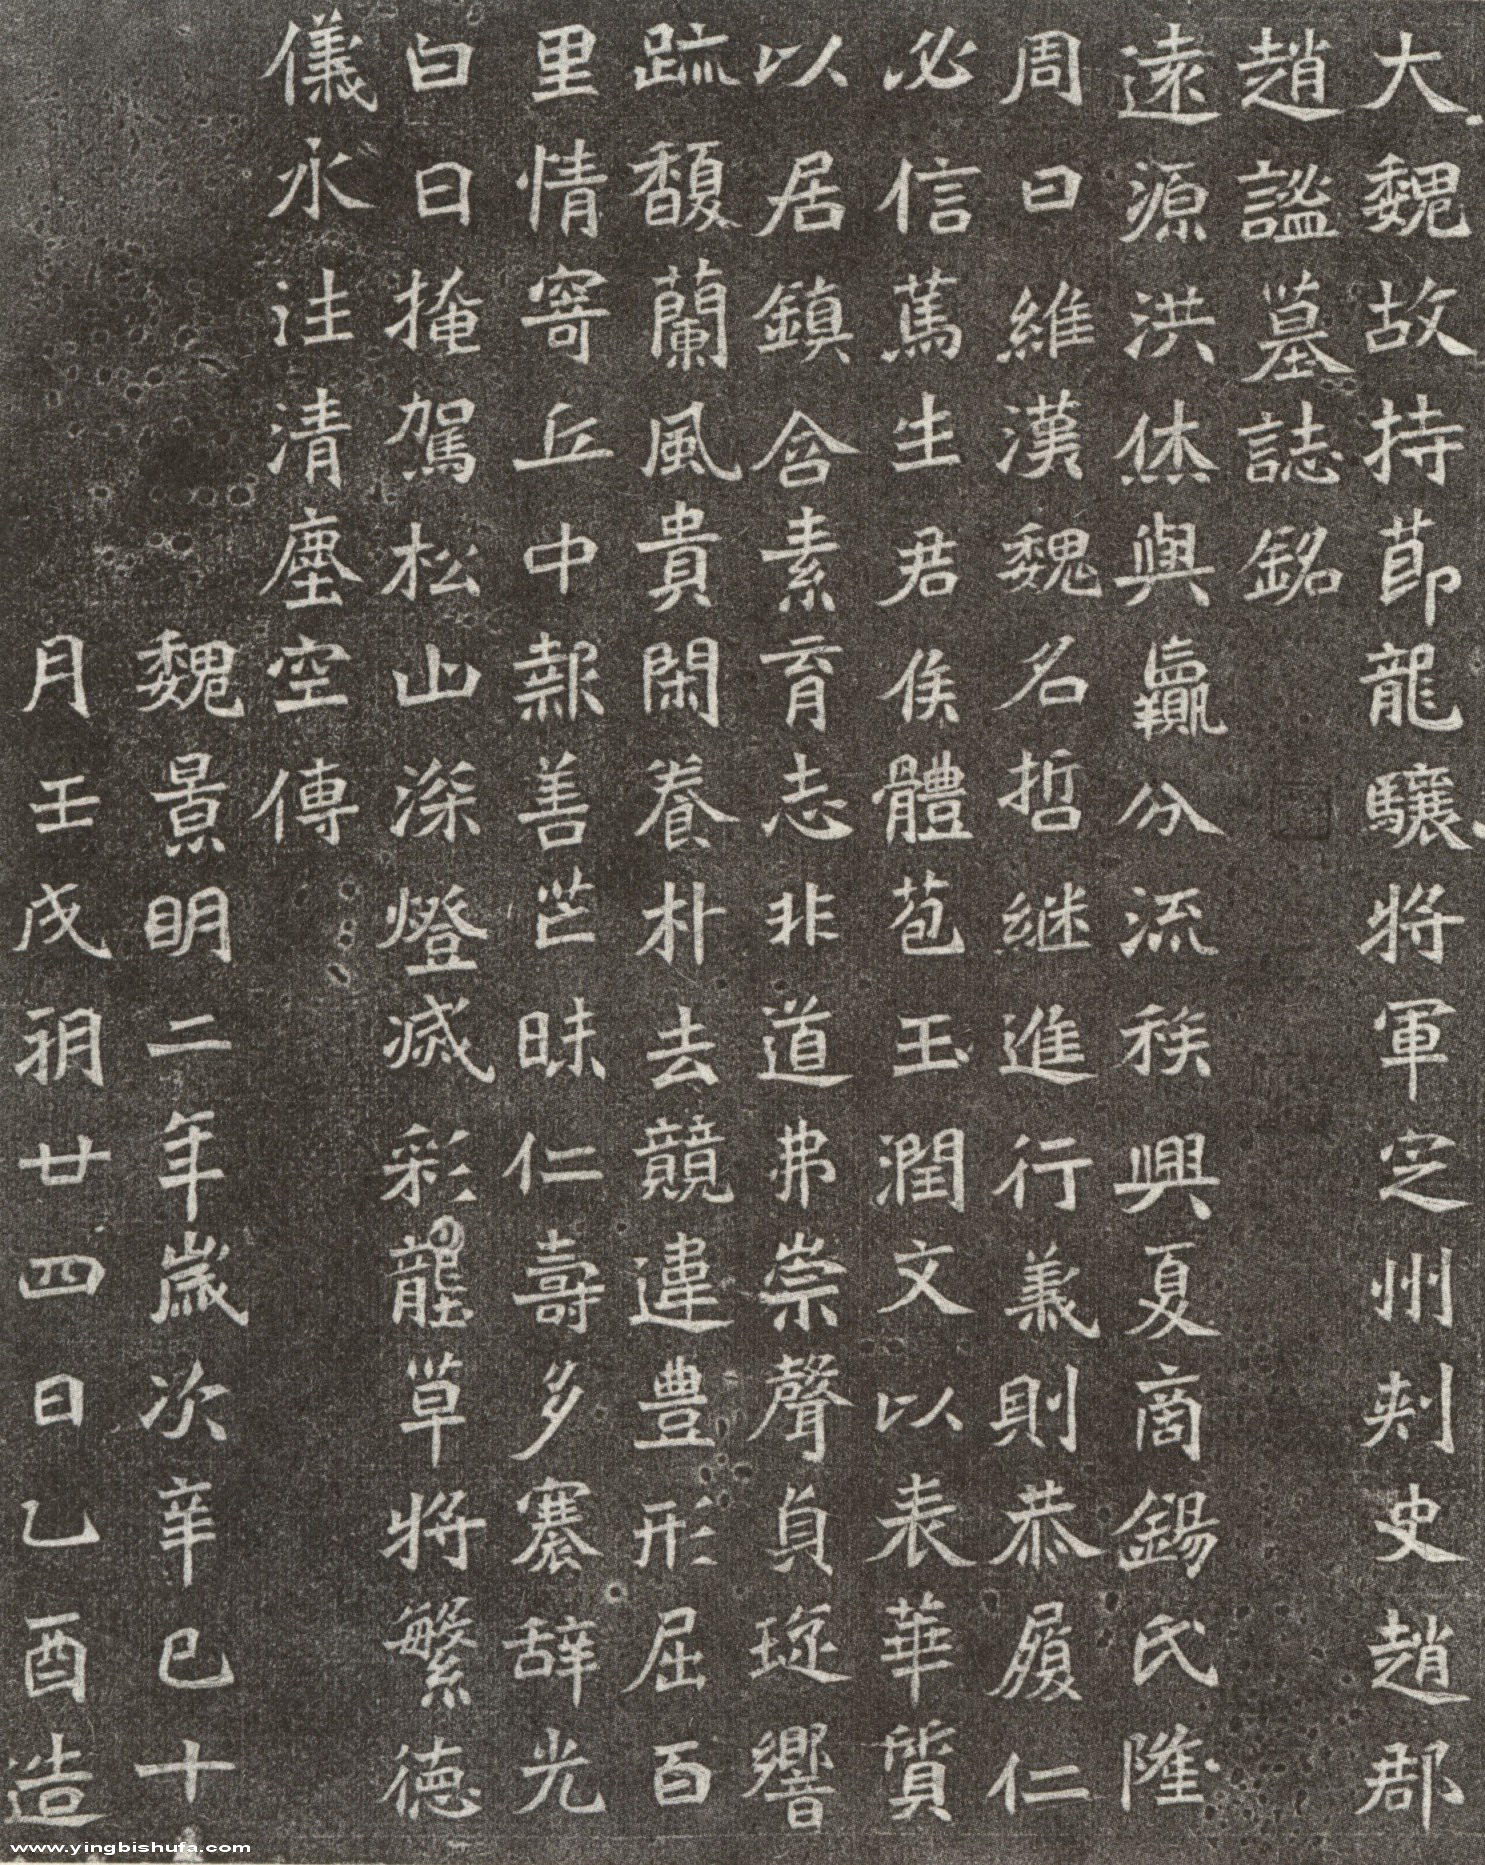 大魏故持節龍驤將軍定州刺史趙郡
趙謐墓誌銘
遠源洪休與嬴分流族興夏商錫氏隆
周曰維漢魏名哲繼進行義則恭履仁
必信篤生君侯體苞玉潤文以表華質
以居鎮含素育志非道弗崇聲貞琁響
疏馥蘭風貴閑養朴去競違豊形屈百
里情寄丘中報善芒昧仁壽多褰辞光
白日掩駕松山深燈滅彩壟草將繁德
儀永往清塵空傳
魏景明二年歲次辛巳十
月壬戌朔廿四日乙酉造
www.yingbishufa.com